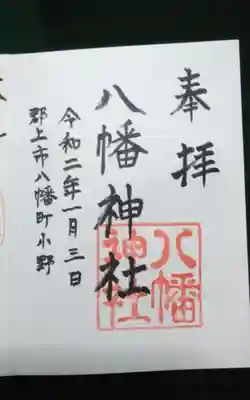 奉拝
八幡神社
令和二年一月三日
郡上市八幡町小野
八幡神社